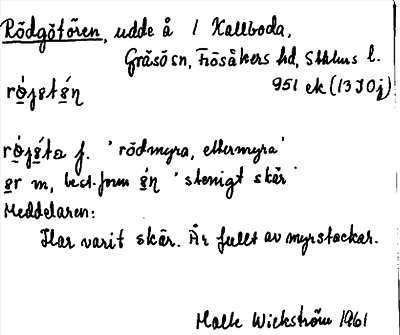 Rödgötören, udde å / Kallboda,
Gräsö sn, Frösåkers hd, Sthlms l.
951 ek (13I0j)
f. 'rödmyra, ettermyra'
m, best. form 'stenigt skär'
Meddelaren:
Har varit skär. Är fullt av myrstackar.
Malte Wickström 1961